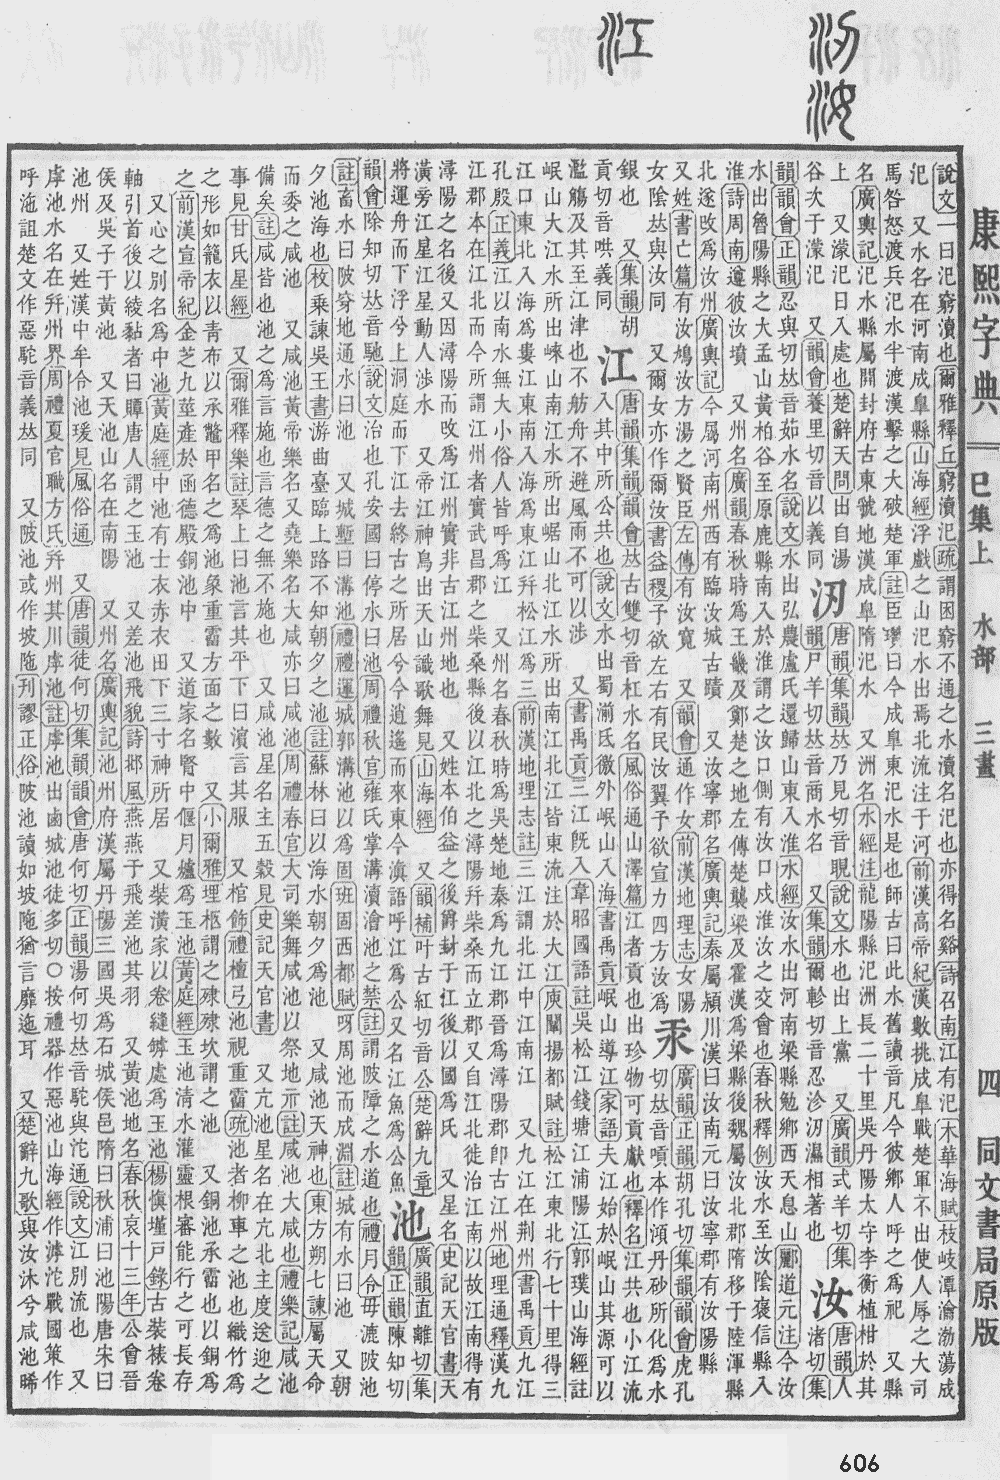 江
汝
康熙字典
巳集上 水部 三畫
四 同文書局原版
說文一曰汜窮瀆也爾雅釋丘窮瀆汜疏謂困窮不通之水瀆名汜也亦得名谿詩召南江有汜木華海賦枝岐潭瀹渤蕩成
汜 又水名在河南成皐縣山海經浮戲之山汜水出焉北流注于河前漢高帝紀漢數挑成皐戰楚軍不出使人辱之大司
馬咎怒渡兵汜水半渡漢擊之大破楚軍註臣瓚曰今成皐東汜水是也師古曰此水舊讀音凡今彼鄉人呼之爲祀 又縣
名廣輿記汜水縣屬開封府古東虢地漢成皐隋汜水 又洲名水經注龍陽縣汜洲長二十里吳丹陽太守李衡植柑於其
上 又濛汜日入處也楚辭天問出自湯
谷次于濛汜 又韻會養里切音以義同
唐韻集韻𠀤乃見切音晛說文水也出上黨 又廣韻式羊切集
韻尸羊切𠀤音商水名 又集韻爾軫切音忍沴濕相著也
汝
唐韻人渚切集
韻韻會正韻忍與切𠀤音茹水名說文水出弘農盧氏還歸山東入淮水經汝水出河南梁縣勉鄉西天息山酈道元注今汝
水出魯陽縣之大盂山黃柏谷至原鹿縣南入於淮謂之汝口側有汝口戍淮汝之交會也春秋釋例汝水至汝陰褒信縣入
淮詩周南遵彼汝墳 又州名廣韻春秋時爲王畿及鄭楚之地左傳楚襲梁及霍漢爲梁縣後魏屬汝北郡隋移于陸渾縣
北遂改爲汝州廣輿記今屬河南州西有臨汝城古蹟 又汝寧郡名廣輿記秦屬潁川漢曰汝南元曰汝寧郡有汝陽縣
又姓書亡篇有汝鳩汝方湯之賢臣左傳有汝寬 又韻會通作女前漢地理志女陽
女陰𠀤與汝同 又爾女亦作爾汝書益稷予欲左右有民汝翼予欲宣力四方汝爲
汞
廣韻正韻胡孔切集韻韻會虎孔
切𠀤音嗊本作澒丹砂所化爲水
銀也 又集韻胡
貢切音哄義同
江
唐韻集韻韻會𠀤古雙切音杠水名風俗通山澤篇江者貢也出珍物可貢獻也釋名江共也小江流
入其中所公共也說文水出蜀湔氐徼外岷山入海書禹貢岷山導江家語夫江始於岷山其源可以
濫觴及其至江津也不舫舟不避風雨不可以涉 又書禹貢三江旣入韋昭國語註吳松江錢塘江浦陽江郭璞山海經註
岷山大江水所出崍山南江水所出崌山北江水所出南江北江皆東流注於大江庾闡揚都賦註松江東北行七十里得三
江口東北入海爲婁江東南入海爲東江幷松江爲三 前漢地理志註三江謂北江中江南江 又九江在荆州書禹貢九
江孔殷正義江以南水無大小俗人皆呼爲江 又州名春秋時爲吳楚地秦爲九江郡晉爲潯陽郡卽古江州地理通釋漢九
江郡本在江北而今所謂江州者實武昌郡之柴桑縣後以江北之潯陽幷柴桑而立郡又自江北徙治江南以故江南得有
潯陽之名後又因潯陽而改爲江州實非古江州地也 又姓本伯益之後爵封于江後以國爲氏 又星名史記天官書天
潢旁江星江星動人涉水 又帝江神鳥出天山識歌舞見山海經 又韻補叶古紅切音公楚辭九章
將運舟而下浮兮上洞庭而下江去終古之所居兮今逍遙而來東今滇語呼江爲公又名江魚爲公魚
池
廣韻直離切集
韻正韻陳知切
韻會除知切𠀤音馳說文治也孔安國曰停水曰池周禮秋官雍氏掌溝瀆澮池之禁註謂陂障之水道也禮月令毋漉陂池
註畜水曰陂穿地通水曰池 又城塹曰溝池禮禮運城郭溝池以爲固班固西都賦呀周池而成淵註城有水曰池 又朝
夕池海也枚乘諫吳王書游曲臺臨上路不知朝夕之池註蘇林曰以海水朝夕爲池 又咸池天神也東方朔七諫屬天命
而委之咸池 又咸池黃帝樂名又堯樂名大咸亦曰咸池周禮春官大司樂舞咸池以祭地示註咸池大咸也禮樂記咸池
備矣註咸皆也池之爲言施也言德之無不施也 又咸池星名主五穀見史記天官書 又亢池星名在亢北主度送迎之
事見甘氏星經 又爾雅釋樂註琴上曰池言其平下曰濵言其服 又棺飾禮檀弓池視重霤疏池者柳車之池也織竹爲
之形如籠衣以靑布以承鼈甲名之爲池象重霤方面之數 又小爾雅埋柩謂之殔殔坎謂之池 又銅池承霤也以銅爲
之前漢宣帝紀金芝九莖產於函德殿銅池中 又道家名腎中偃月爐爲玉池黃庭經玉池淸水灌靈根審能行之可長存
又心之別名爲中池黃庭經中池有士衣赤衣田下三寸神所居 又裝潢家以卷縫罅處爲玉池楊愼墐戸錄古裝裱卷
軸引首後以綾黏者曰贉唐人謂之玉池 又差池飛貌詩邶風燕燕于飛差池其羽 又黃池地名春秋哀十三年公會晉
侯及吳子于黃池 又天池山名在南陽 又州名廣輿記池州府漢屬丹陽三國吳爲石城侯邑隋曰秋浦曰池陽唐宋曰
池州 又姓漢中牟令池瑗見風俗通 又唐韻徒何切集韻韻會唐何切正韻湯何切𠀤音駝與沱通說文江別流也 又
虖池水名在幷州界周禮夏官職方氏幷州其川虖池註虖池出鹵城池徒多切○按禮器作惡池山海經作滹沱戰國策作
呼沲詛楚文作惡駝音義𠀤同 又陂池或作坡陁刊謬正俗陂池讀如坡陁猶言靡迤耳 又楚辭九歌與汝沐兮咸池晞
606